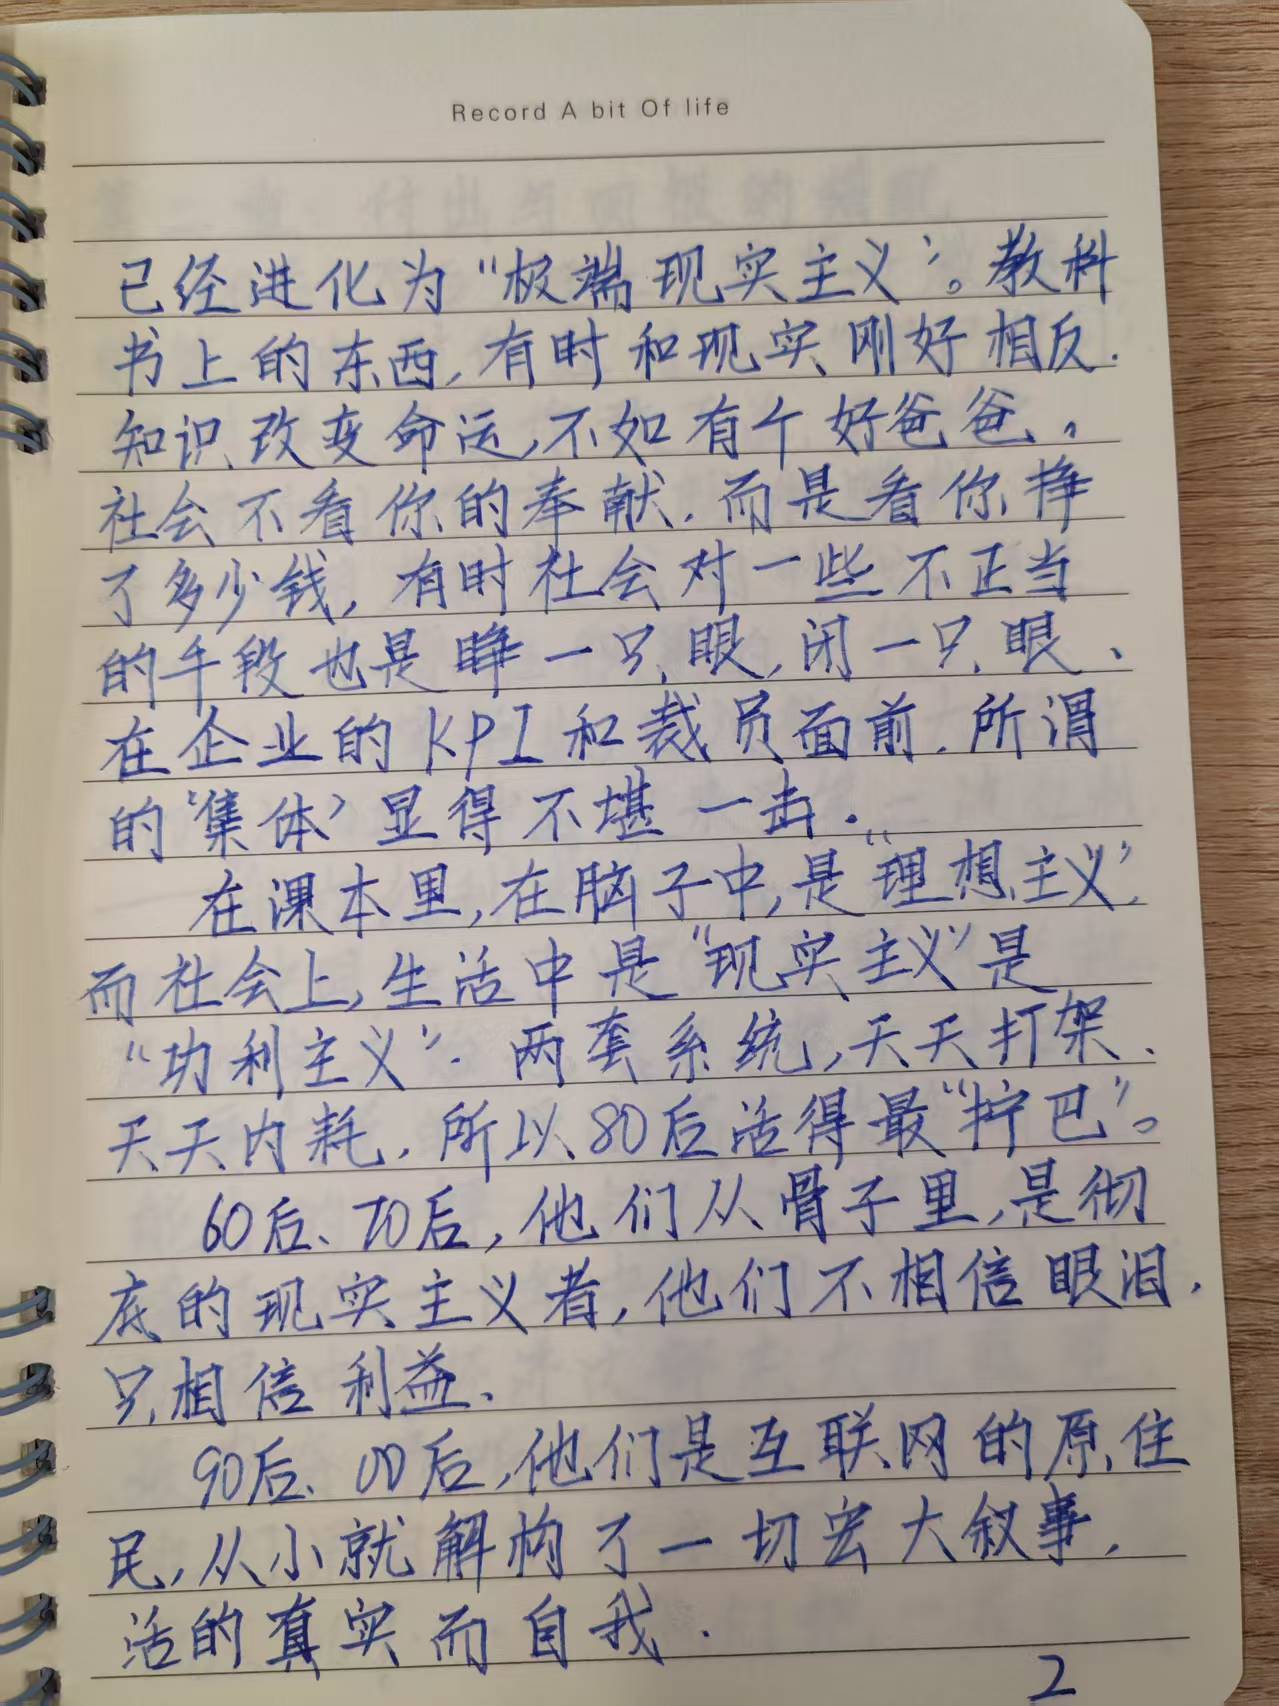 Record A bit Of life
己经进化为“极端现实主义”。教科
书上的东西,有时和现实刚好相反.
知识改变命运,不如有个好爸爸。
社会不看你的奉献.而是看你挣
了多少钱,有时社会对一些不正当
的手段也是睁一只眼,闭一只眼、
在企业的KPI和裁员面前.所谓
的“集体”显得不堪一击.
在课本里,在脑子中,是“理想主义”,
而社会上,生活中是“现实主义”是
“功利主义”.两套系统,天天打架、
天天内耗.所以80后活得最“拧巴”。
60后、70后,他们从骨子里,是彻
底的现实主义者,他们不相信眼泪,
只相信利益.
90后、00后,他们是互联网的原住
民,从小就解构了一切宏大叙事,
活的真实而自我.
2